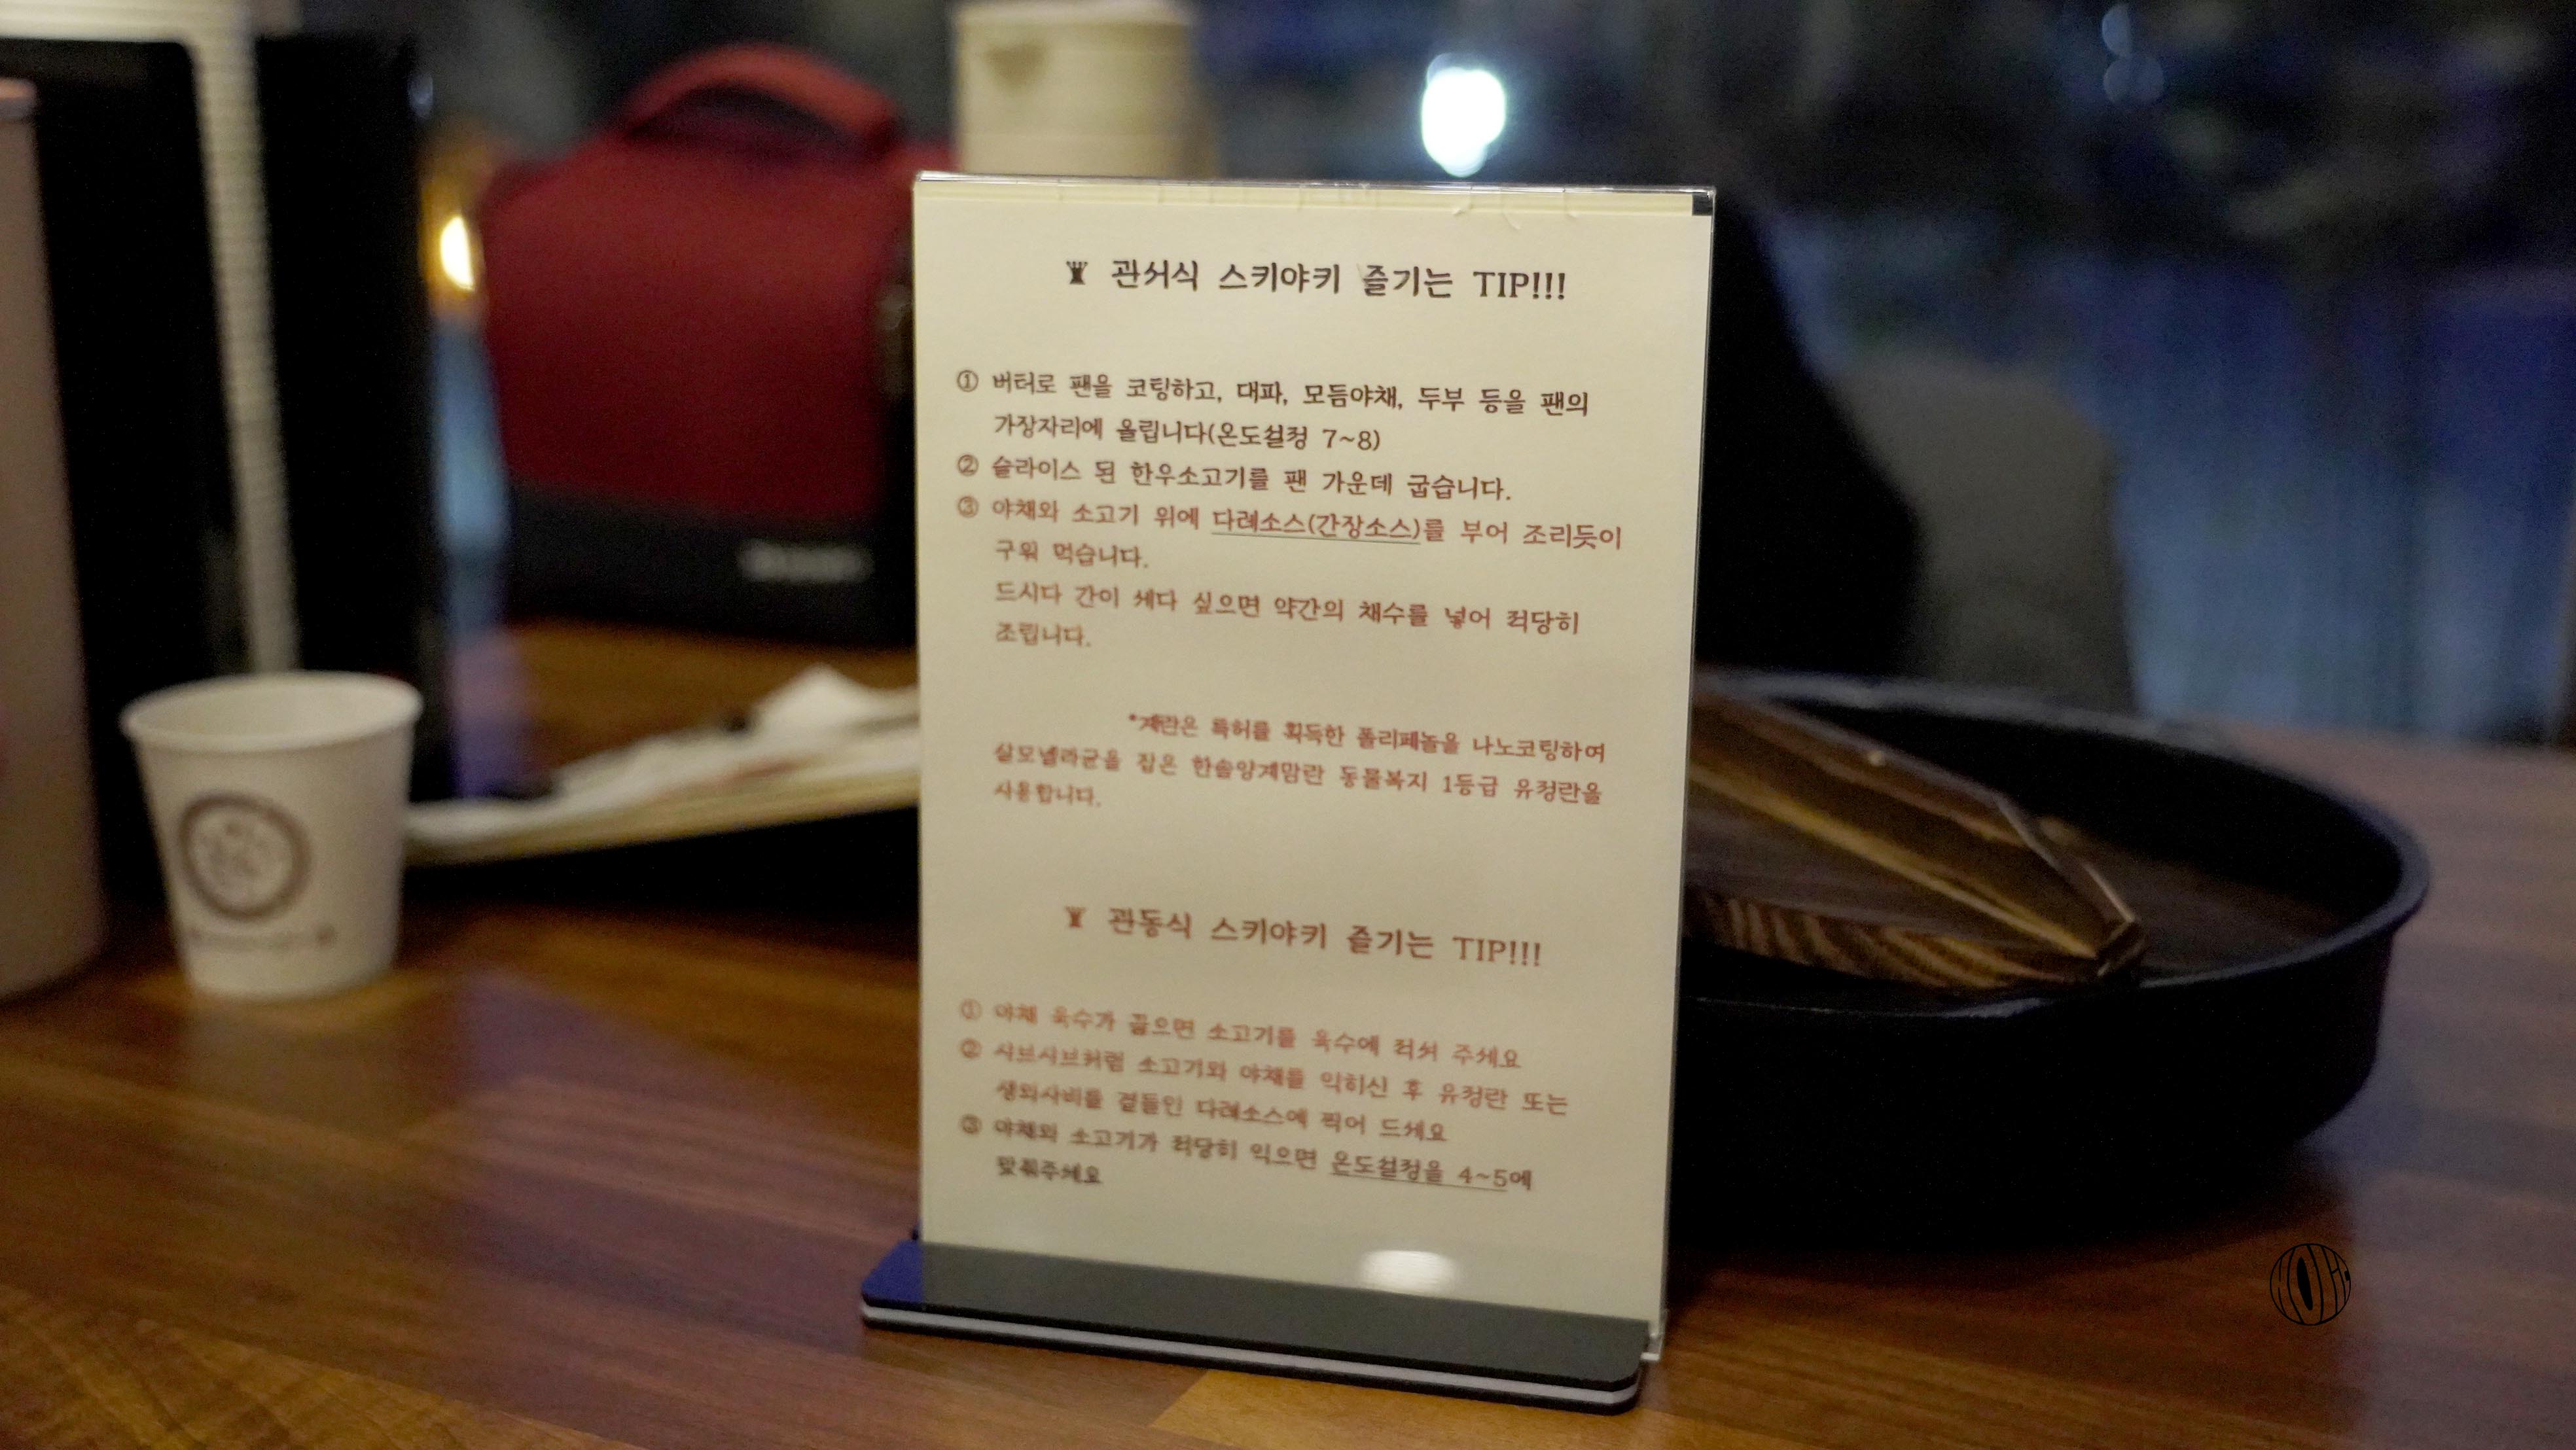 관서식 스키야키 즐기는 TIP!!!
① 버터로 팬을 코팅하고, 대파, 모듬야채, 두부 등을 팬의
가장자리에 올립니다(온도설정 7~8)
② 슬라이스 된 한우소고기를 팬 가운데 굽습니다.
③ 야채와 소고기 위에 다레소스(간장소스)를 부어 조리듯이
구워 먹습니다.
드시다 간이 쎄다 싶으면 약간의 채수를 넣어 적당히
조립니다.
*계란은 특허를 획득한 폴리페놀을 나노코팅하여
살모넬라균을 잡은 한솔양계맘란 동물복지 1등급 유정란을
사용합니다.
관동식 스키야키 즐기는 TIP!!!
① 야채 육수가 끓으면 소고기를 육수에 적셔 주세요
② 샤브샤브처럼 소고기와 야채를 익히신 후 유정란 또는
생와사비를 곁들인 다레소스에 찍어 드세요
③ 야채와 소고기가 적당히 익으면 온도설정을 4~5에
맞춰주세요